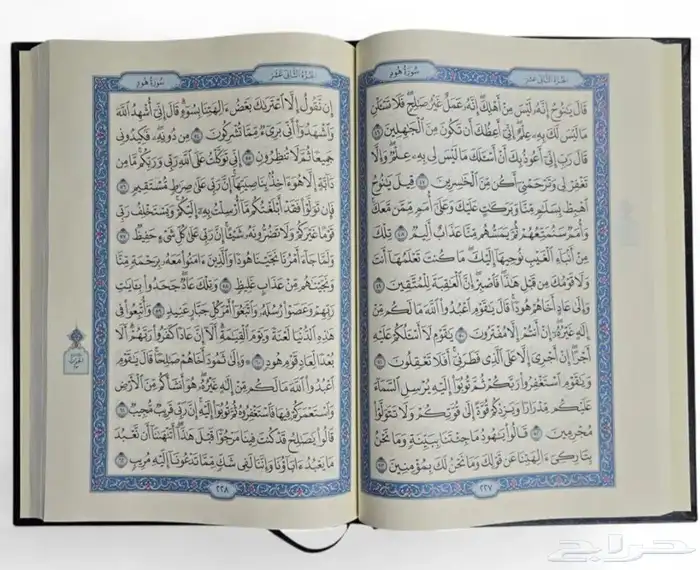 الجزء الثاني عشر
سورة هود
قَالَ يَنُوحُ إِنَّهُۥ لَيْسَ مِنْ أَهْلِكَ إِنَّهُۥ عَمَلٌ غَيْرُ صَٰلِحٍ فَلَا تَسْـَٔلْنِ
مَا لَيْسَ لَكَ بِهِۦ عِلْمٌ إِنِّىٓ أَعِظُكَ أَن تَكُونَ مِنَ ٱلْجَٰهِلِينَ ٤٦
قَالَ رَبِّ إِنِّىٓ أَعُوذُ بِكَ أَنْ أَسْـَٔلَكَ مَا لَيْسَ لِى بِهِۦ عِلْمٌ وَإِلَّا
تَغْفِرْ لِى وَتَرْحَمْنِىٓ أَكُن مِّنَ ٱلْخَٰسِرِينَ ٤٧ قِيلَ يَٰنُوحُ
ٱهْبِطْ بِسَلَٰمٍ مِّنَّا وَبَرَكَٰتٍ عَلَيْكَ وَعَلَىٰٓ أُمَمٍ مِّمَّن مَّعَكَ
وَأُمَمٌ سَنُمَتِّعُهُمْ ثُمَّ يَمَسُّهُم مِّنَّا عَذَابٌ أَلِيمٌ ٤٨ تِلْكَ
مِنْ أَنۢبَآءِ ٱلْغَيْبِ نُوحِيهَآ إِلَيْكَ مَا كُنتَ تَعْلَمُهَآ أَنتَ
وَلَا قَوْمُكَ مِن قَبْلِ هَٰذَا فَٱصْبِرْ إِنَّ ٱلْعَٰقِبَةَ لِلْمُتَّقِينَ ٤٩
وَإِلَىٰ عَادٍ أَخَاهُمْ هُودًا قَالَ يَٰقَوْمِ ٱعْبُدُوا۟ ٱللَّهَ مَا لَكُم مِّنْ
إِلَٰهٍ غَيْرُهُۥٓ إِنْ أَنتُمْ إِلَّا مُفْتَرُونَ ٥٠ يَٰقَوْمِ لَآ أَسْـَٔلُكُمْ عَلَيْهِ
أَجْرًا إِنْ أَجْرِىَ إِلَّا عَلَى ٱلَّذِى فَطَرَنِىٓ أَفَلَا تَعْقِلُونَ ٥١
وَيَٰقَوْمِ ٱسْتَغْفِرُوا۟ رَبَّكُمْ ثُمَّ تُوبُوٓا۟ إِلَيْهِ يُرْسِلِ ٱلسَّمَآءَ
عَلَيْكُم مِّدْرَارًا وَيَزِدْكُمْ قُوَّةً إِلَىٰ قُوَّتِكُمْ وَلَا تَتَوَلَّوْا۟
مُجْرِمِينَ ٥٢ قَالُوا۟ يَٰهُودُ مَا جِئْتَنَا بِبَيِّنَةٍ وَمَا نَحْنُ
بِتَارِكِىٓ ءَالِهَتِنَا عَن قَوْلِكَ وَمَا نَحْنُ لَكَ بِمُؤْمِنِينَ ٥٣
٢٢٧
الجزء الثاني عشر
سورة هود
إِن نَّقُولُ إِلَّا ٱعْتَرَىٰكَ بَعْضُ ءَالِهَتِنَا بِسُوٓءٍ قَالَ إِنِّىٓ أُشْهِدُ ٱللَّهَ
وَٱشْهَدُوٓا۟ أَنِّى بَرِىٓءٌ مِّمَّا تُشْرِكُونَ ٥٤ مِن دُونِهِۦ فَكِيدُونِى
جَمِيعًا ثُمَّ لَا تُنظِرُونِ ٥٥ إِنِّى تَوَكَّلْتُ عَلَى ٱللَّهِ رَبِّى وَرَبِّكُم مَّا مِن
دَآبَّةٍ إِلَّا هُوَ ءَاخِذٌۢ بِنَاصِيَتِهَآ إِنَّ رَبِّى عَلَىٰ صِرَٰطٍ مُّسْتَقِيمٍ ٥٦
فَإِن تَوَلَّوْا۟ فَقَدْ أَبْلَغْتُكُم مَّآ أُرْسِلْتُ بِهِۦٓ إِلَيْكُمْ وَيَسْتَخْلِفُ رَبِّى
قَوْمًا غَيْرَكُمْ وَلَا تَضُرُّونَهُۥ شَيْـًٔا إِنَّ رَبِّى عَلَىٰ كُلِّ شَىْءٍ حَفِيظٌ ٥٧
وَلَمَّا جَآءَ أَمْرُنَا نَجَّيْنَا هُودًا وَٱلَّذِينَ ءَامَنُوا۟ مَعَهُۥ بِرَحْمَةٍ مِّنَّا
وَنَجَّيْنَٰهُم مِّنْ عَذَابٍ غَلِيظٍ ٥٨ وَتِلْكَ عَادٌ جَحَدُوا۟ بِـَٔايَٰتِ
رَبِّهِمْ وَعَصَوْا۟ رُسُلَهُۥ وَٱتَّبَعُوٓا۟ أَمْرَ كُلِّ جَبَّارٍ عَنِيدٍ ٥٩ وَأُتْبِعُوا۟ فِى
هَٰذِهِ ٱلدُّنْيَا لَعْنَةً وَيَوْمَ ٱلْقِيَٰمَةِ أَلَآ إِنَّ عَادًا كَفَرُوا۟ رَبَّهُمْ أَلَا
بُعْدًا لِّعَادٍ قَوْمِ هُودٍ ٦٠ وَإِلَىٰ ثَمُودَ أَخَاهُمْ صَٰلِحًا قَالَ يَٰقَوْمِ
ٱعْبُدُوا۟ ٱللَّهَ مَا لَكُم مِّنْ إِلَٰهٍ غَيْرُهُۥ هُوَ أَنشَأَكُم مِّنَ ٱلْأَرْضِ
وَٱسْتَعْمَرَكُمْ فِيهَا فَٱسْتَغْفِرُوهُ ثُمَّ تُوبُوٓا۟ إِلَيْهِ إِنَّ رَبِّى قَرِيبٌ مُّجِيبٌ ٦١
قَالُوا۟ يَٰصَٰلِحُ قَدْ كُنتَ فِينَا مَرْجُوًّا قَبْلَ هَٰذَآ أَتَنْهَىٰنَآ أَن نَّعْبُدَ
مَا يَعْبُدُ ءَابَآؤُنَا وَإِنَّنَا لَفِى شَكٍّ مِّمَّا تَدْعُونَآ إِلَيْهِ مُرِيبٍ ٦٢
٢٢٨
حراج